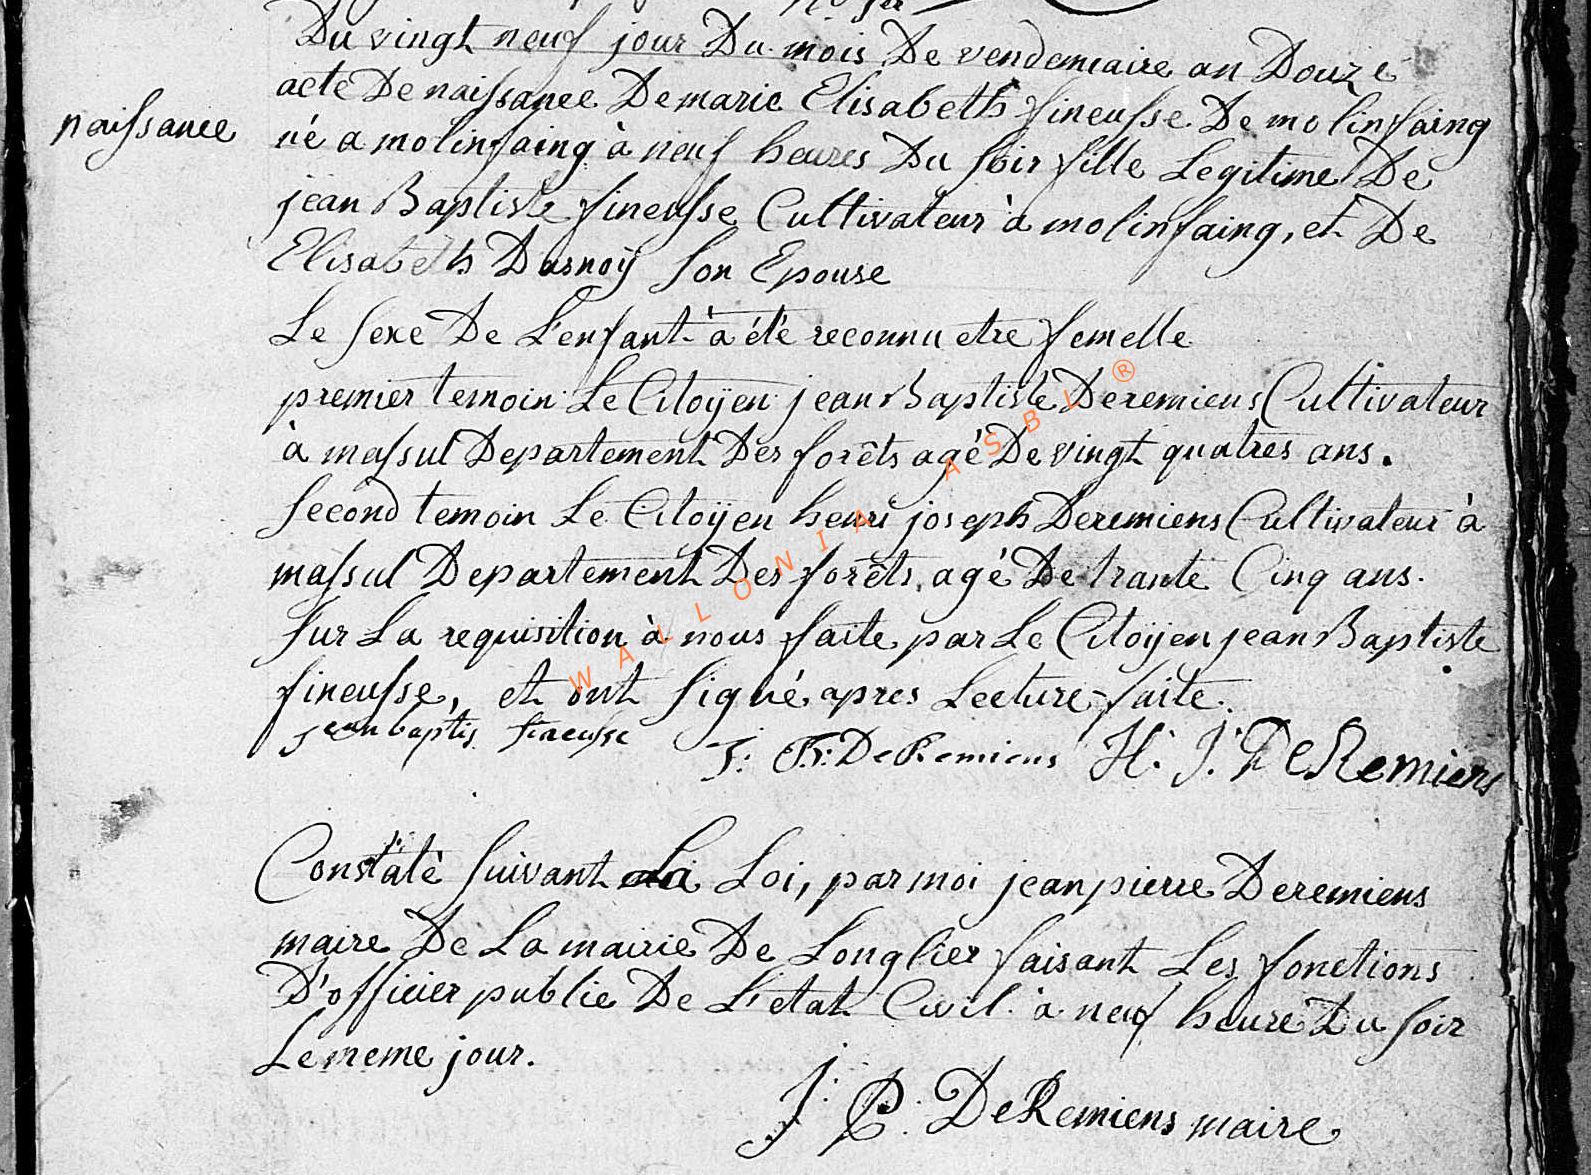 Du vingt neuf jour Du mois De vendemiaire an Douze
acte De naissance De marie Elisabeth fineusse De molinfaing
naissance
né a molinfaing à neuf heures Du soir fille Legitime De
jean Baptiste fineusse Cultivateur à molinfaing, et De
Elisabeth Dasnoÿ son Epouse
Le sexe De L'enfant à été reconnu etre femelle
premier temoin Le Citoÿen jean Baptiste Deremiens Cultivateur
à massul Departement Des forêts agé De vingt quatres ans.
second temoin Le Citoÿen henri joseph Deremiens Cultivateur à
massul Departement Des forêts, agé De trante Cinq ans.
sur La requisition à nous faite par Le Citoÿen jean Baptiste
fineusse, et ont signé apres Lecture faite.
jean baptis fineusse J: B: DeRemiens H: J: DeRemiens
Constaté suivant La Loi, par moi jean pierre Deremiens
maire De La mairie De Longlier faisant Les fonctions
D'officier public De L'etat Civil à neuf heure Du soir
Le meme jour.
J: P: DeRemiens maire
WALLONIA ASBL ®